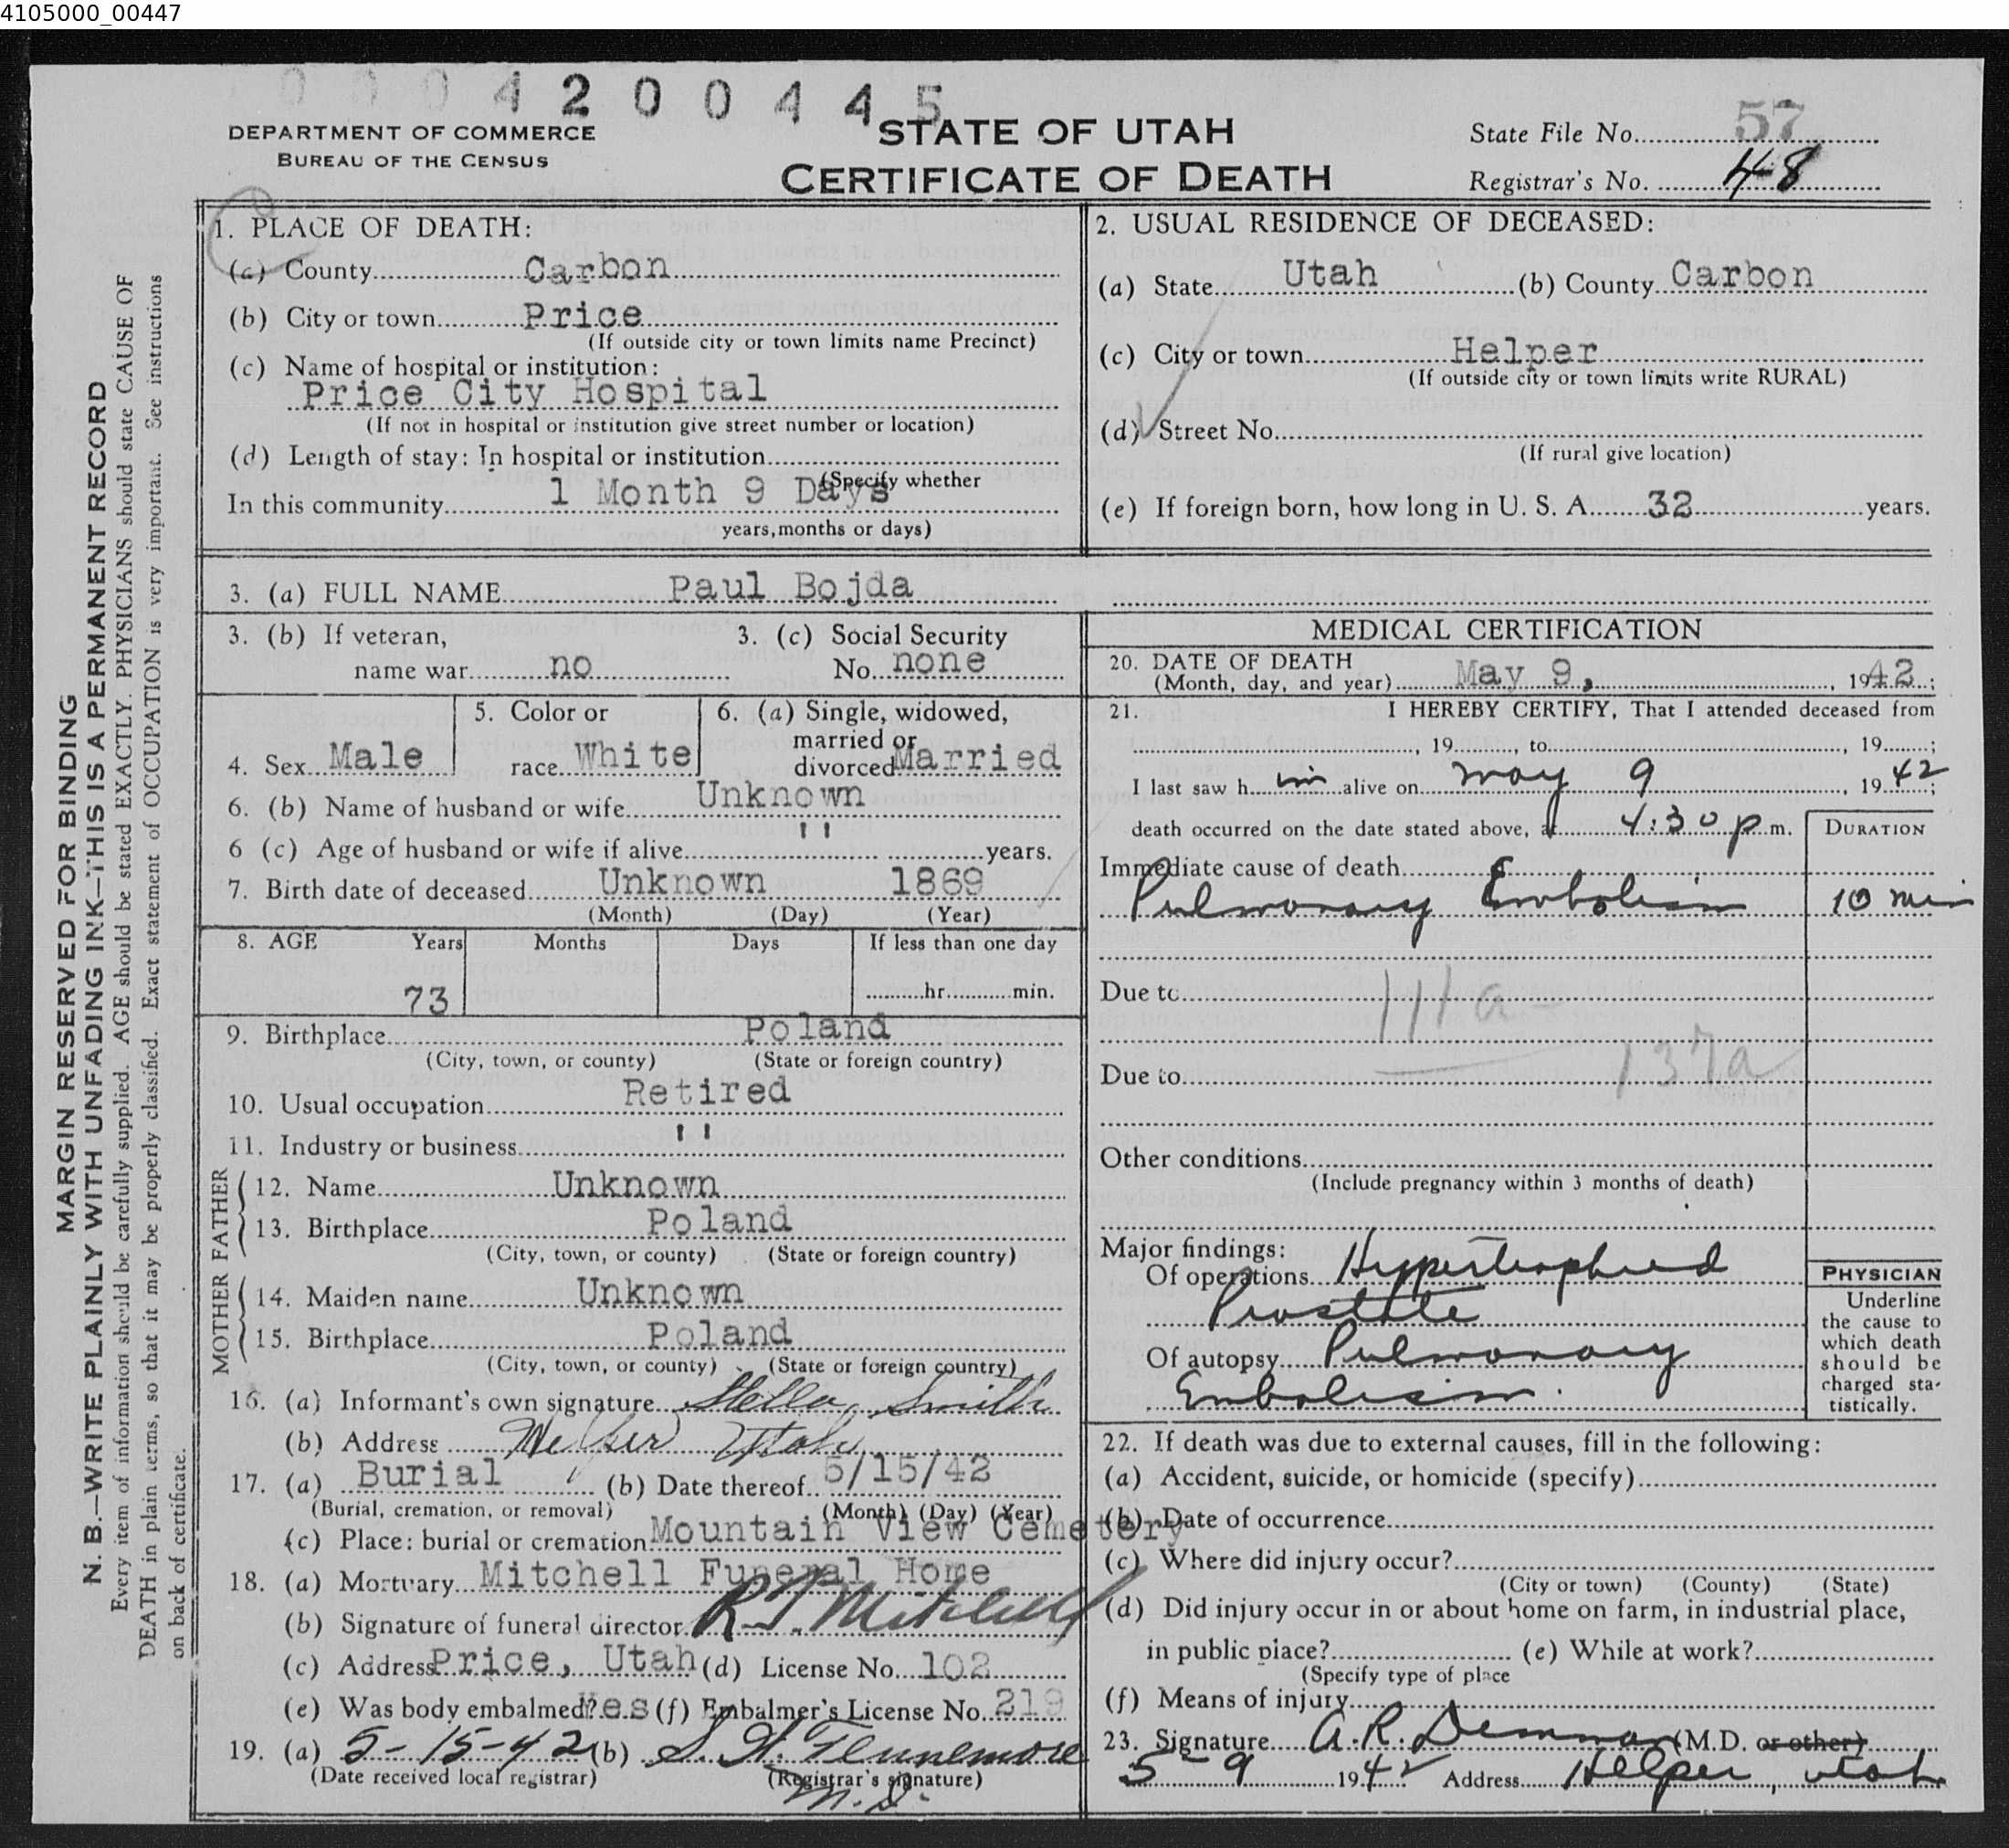 4105000_00447
0004200445
DEPARTMENT OF COMMERCE
BUREAU OF THE CENSUS
STATE OF UTAH
CERTIFICATE OF DEATH
State File No. 57
Registrar's No. 48
MARGIN RESERVED FOR BINDING
N. B.—WRITE PLAINLY WITH UNFADING INK—THIS IS A PERMANENT RECORD
Every item of information should be carefully supplied. AGE should be stated EXACTLY. PHYSICIANS should state CAUSE OF
DEATH in plain terms, so that it may be properly classified. Exact statement of OCCUPATION is very important. See instructions
on back of certificate.
1. PLACE OF DEATH:
(a) County Carbon
(b) City or town Price
(If outside city or town limits name Precinct)
(c) Name of hospital or institution:
Price City Hospital
(If not in hospital or institution give street number or location)
(d) Length of stay: In hospital or institution
(Specify whether
In this community 1 Month 9 Days
years, months or days)
2. USUAL RESIDENCE OF DECEASED:
(a) State Utah (b) County Carbon
(c) City or town Helper
(If outside city or town limits write RURAL)
(d) Street No.
(If rural give location)
(e) If foreign born, how long in U. S. A. 32 years.
3. (a) FULL NAME Paul Bojda
3. (b) If veteran,
name war no
3. (c) Social Security
No. none
4. Sex Male
5. Color or
race White
6. (a) Single, widowed,
married or
divorced Married
6. (b) Name of husband or wife Unknown
6 (c) Age of husband or wife if alive " years.
7. Birth date of deceased Unknown 1869
(Month) (Day) (Year)
8. AGE Years Months Days If less than one day
73 hr. min.
9. Birthplace Poland
(City, town, or county) (State or foreign country)
10. Usual occupation Retired
11. Industry or business "
FATHER
12. Name Unknown
13. Birthplace Poland
(City, town, or county) (State or foreign country)
MOTHER
14. Maiden name Unknown
15. Birthplace Poland
(City, town, or county) (State or foreign country)
16. (a) Informant's own signature Stella Smith
(b) Address Helper Utah
17. (a) Burial (b) Date thereof 5/15/42
(Burial, cremation, or removal) (Month) (Day) (Year)
(c) Place: burial or cremation Mountain View Cemetery
18. (a) Mortuary Mitchell Funeral Home
(b) Signature of funeral director Mitchell
(c) Address Price, Utah (d) License No. 102
(e) Was body embalmed? Yes (f) Embalmer's License No. 219
19. (a) 5-15-42 (b) Tennemore
(Date received local registrar) (Registrar's signature)
M.D.
MEDICAL CERTIFICATION
20. DATE OF DEATH
(Month, day, and year) May 9, 1942;
21. I HEREBY CERTIFY, That I attended deceased from
, 19 , to , 19 ;
I last saw him alive on May 9, 1942;
death occurred on the date stated above, at 4:30 p m.
DURATION
Immediate cause of death
Pulmonary Embolism 10 min
Due to 111a
Due to 137a
Other conditions
(Include pregnancy within 3 months of death)
Major findings:
Of operations Hypertrophied
Prostate
Of autopsy Pulmonary
Embolism.
PHYSICIAN
Underline
the cause to
which death
should be
charged sta-
tistically.
22. If death was due to external causes, fill in the following:
(a) Accident, suicide, or homicide (specify)
(b) Date of occurrence
(c) Where did injury occur?
(City or town) (County) (State)
(d) Did injury occur in or about home on farm, in industrial place,
in public place? (e) While at work?
(Specify type of place
(f) Means of injury
23. Signature A. R. Demman (M.D. or other)
5-9 1942 Address Helper, Utah